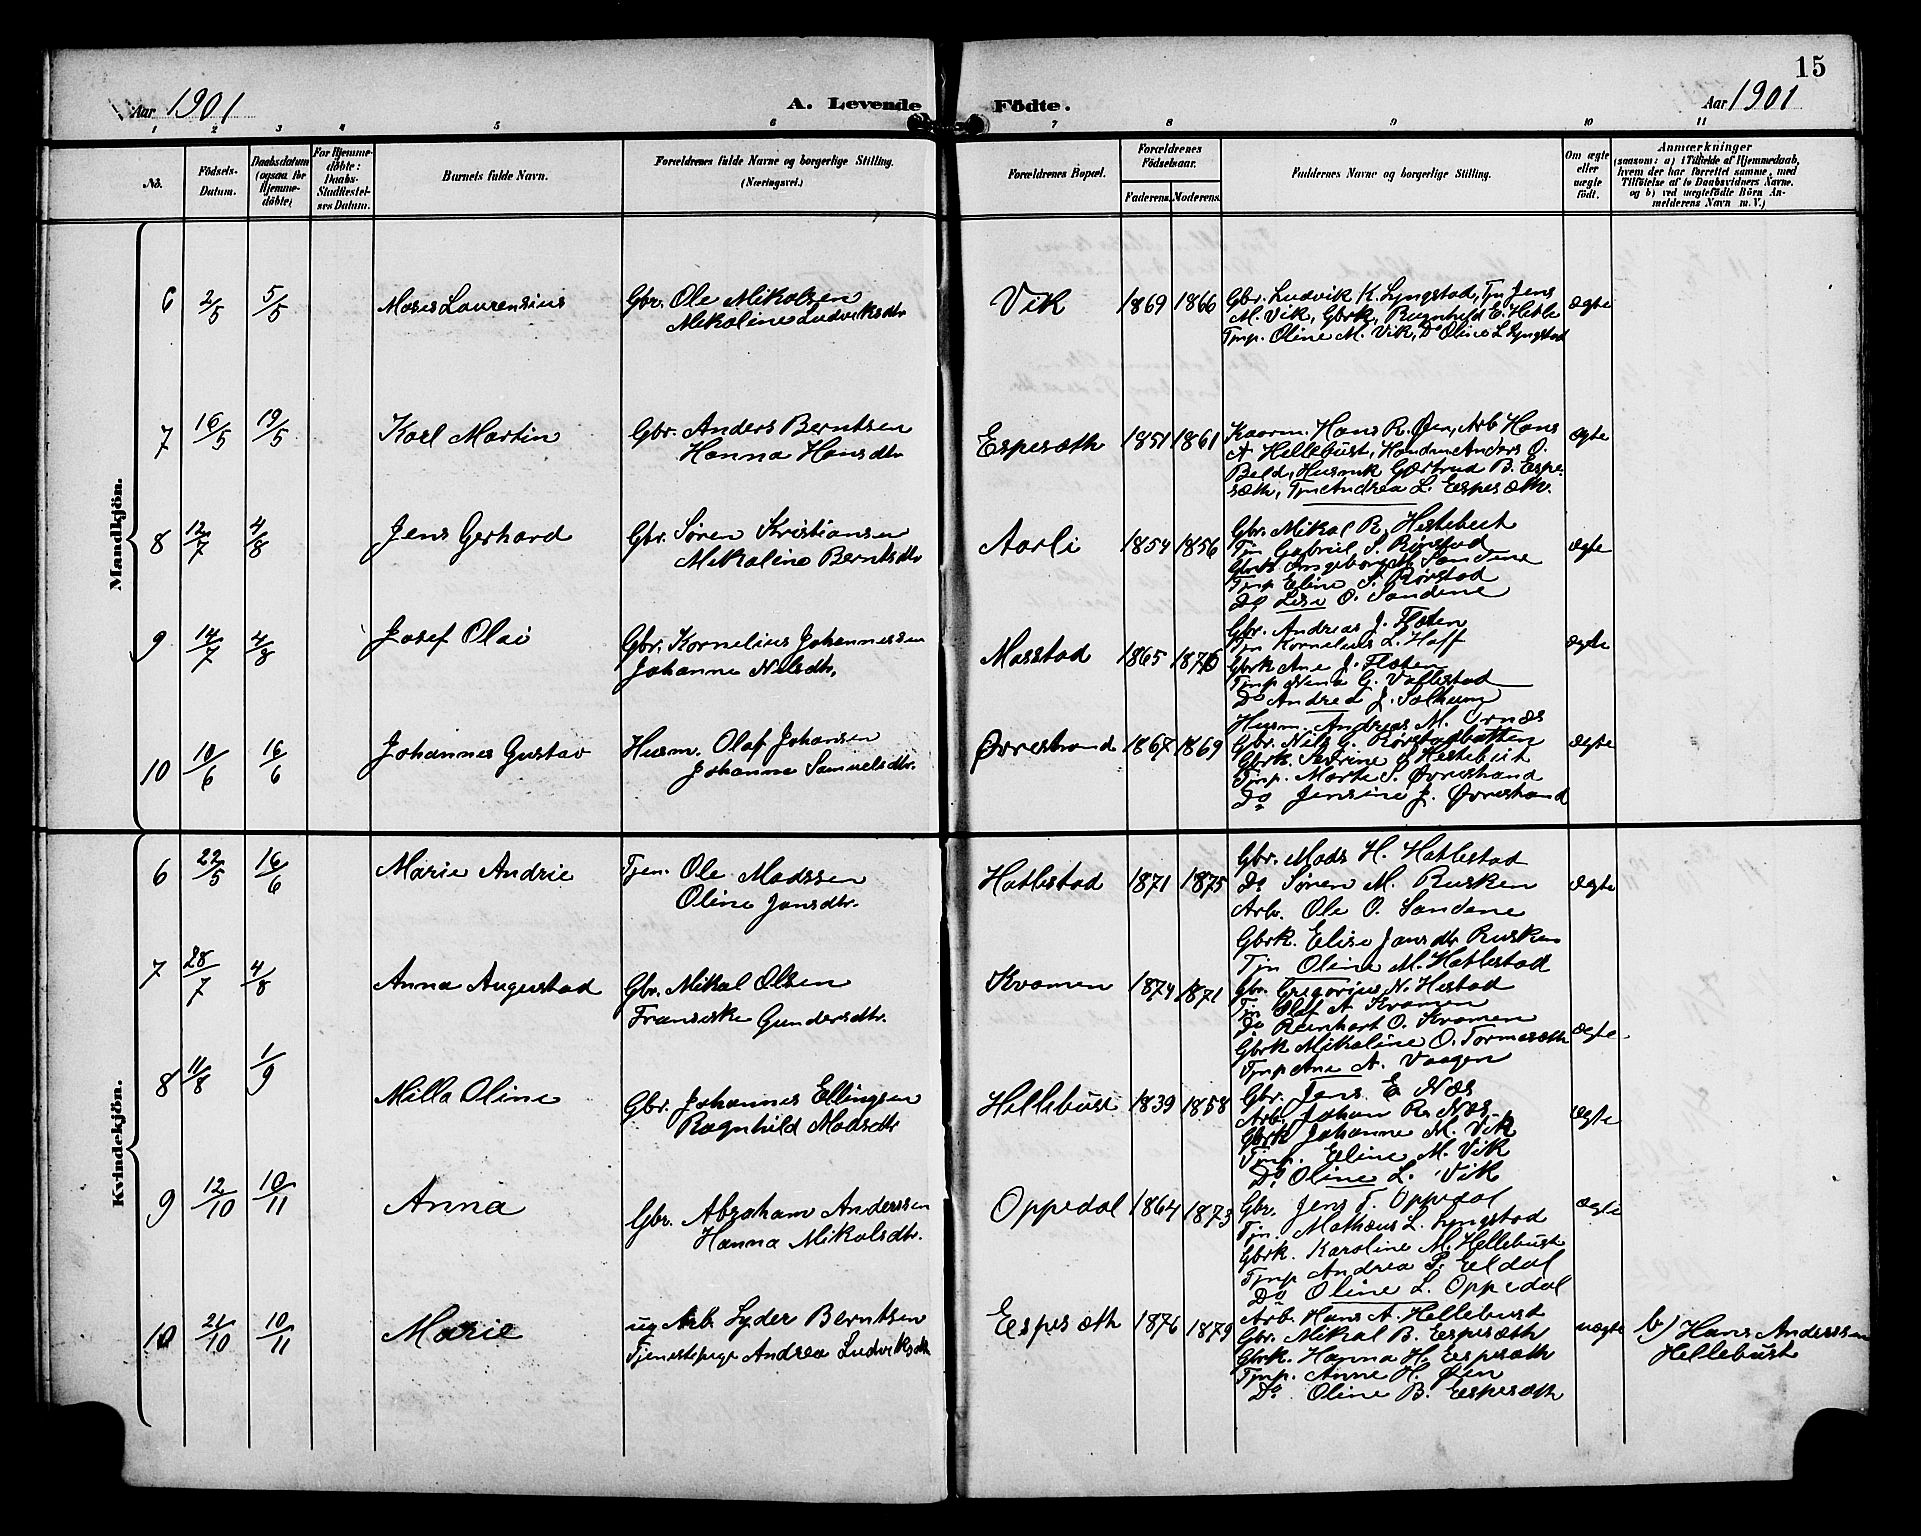 15
Aar 1901
A. Levende Födte.
Aar 1901
1 2 3 4 5 6 7 8 9 10 11
No.
Födsels-
Datum.
Daabsdatum
(ogsaa for
Hjemme-
döbte)
For Hjemme-
döbte:
Daabs-
Stadfæstel-
ses Datum.
Barnets fulde Navn.
Forældrenes fulde Navne og borgerlige Stilling.
(Næringsvei.)
Forældrenes Bopæl.
Forældrenes
Födselsaar.
Faderens. Moderens.
Faddernes Navne og borgerlige Stilling.
Om ægte
eller
uægte
födt.
Anmærkninger
(saasom: a) i Tilfælde af Hjemmedaab,
hvem der har forrettet samme, med
Tilföielse af to Daabsvidners Navne.
og b) ved uægtefödte Börn An-
melderens Navn m. V.)
Mandkjön.
6 2/5 5/5 Moses Laurensius
Gbr. Ole Mikalsen
Mikaline Ludviksdtr
Vik 1869 1866
Gbr. Ludvik K. Lyngstad, Tjn Jens
M. Vik, Gbrk, Ragnhild E. Hetle
Tjnp. Oline M. Vik, Do Oline L Lyngstad
ægte
7 16/5 19/5 Karl Martin
Gbr. Anders Berntsen
Hanna Hansdtr
Espesæth 1851 1861
Kaarm. Hans R. Øen, Arb Hans
A Hellebust, Handm Anders O.
Beld, Husmk Gjertrud B. Espe-
sæth, Tjn Andrea L. Espesæth.
ægte
8 12/7 4/8 Jens Gerhard
Gbr. Søren Kristiansen
Mikaline Berntsdtr
Aarli 1854 1856
Gbr. Mikal R. Hestebeit
Tjn Gabriel S. Rørstad
Gbrk Ingeborg M. Sandene
Tjnp Eline S. Rørstad
Do Lise O. Sandene
ægte
9 14/7 4/8 Josef Olai
Gbr. Kornelius Johannessen
Johanne Nilsdtr.
Masstad 1865 1876
Gbr. Andreas J. Flaten
Tjn Kornelius L. Hoff
Gbrk Ane J. Flaten
Tjnp Nina G. Vallestad
Do Andrea J. Solhaug
ægte
10 10/6 16/6 Johannes Gustav
Husm. Olaf Johansen
Johanne Samuelsdtr.
Øvrestrand 1867 1869
Husm. Andreas M. Ornæs
Gbr. Nils G. Rørstadbotten
Gbrk. Severine J Hestebeit
Tjnp. Marte S. Øvrestrand
Do Jensine J. Øvrestrand
ægte
Kvindekjön.
6 22/5 16/6 Marie Andrie
Tjen. Ole Madssen
Oline Jansdtr.
Hatlestad 1871 1875
Gbr. Mads H. Hatlestad
Do Søren M. Rusken
Arb. Ole O. Sandene
Gbrk. Elise Jansdtr Rusken
Tjn Oline M. Hatlestad
ægte
7 28/7 4/8 Anna Augustad
Gbr. Mikal Olsen
Fransiske Gundersdtr.
Kvamen 1874 1871
Gbr. Gregorius N. Hestad
Tjn Olaf A Kvamen
Do Reinhart O. Kvamen
Gbrk Mikaline O. Tormasæth
Tjnp Ane A. Vaagen
ægte
8 11/8 1/9 Milla Oline
Gbr. Johannes Ellingsen
Ragnhild Madsdtr
Hellebust 1839 1858
Gbr. Jens E Næs
Arb. Johan R. Næs
Gbrk Johanne M. Vik
Tjnp. Eline M. Vik
Do Oline L. Vik
ægte
9 12/10 10/11 Anna
Gbr. Abraham Anderssen
Hanna Mikalsdtr.
Oppedal 1864 1873
Gbr. Jens T. Oppedal
Tjn. Mathæus L. Lyngstad
Gbrk. Karoline M. Hellebust
Tjnp Andrea P. Eldal
Do Oline L. Oppedal
ægte
10 21/10 10/11 Marie
ug Arb. Lyder Berntsen
Tjenestepige Andrea Ludviksdtr
Espesæth 1876 1879
Arb. Hans A. Hellebust
Gbr. Mikal B. Espesæth
Gbrk. Hanna H. Espesæth
Tjnp. Anne H. Øen
Do Oline B. Espesæth
uægte
b) Hans Anderssen
Hellebust